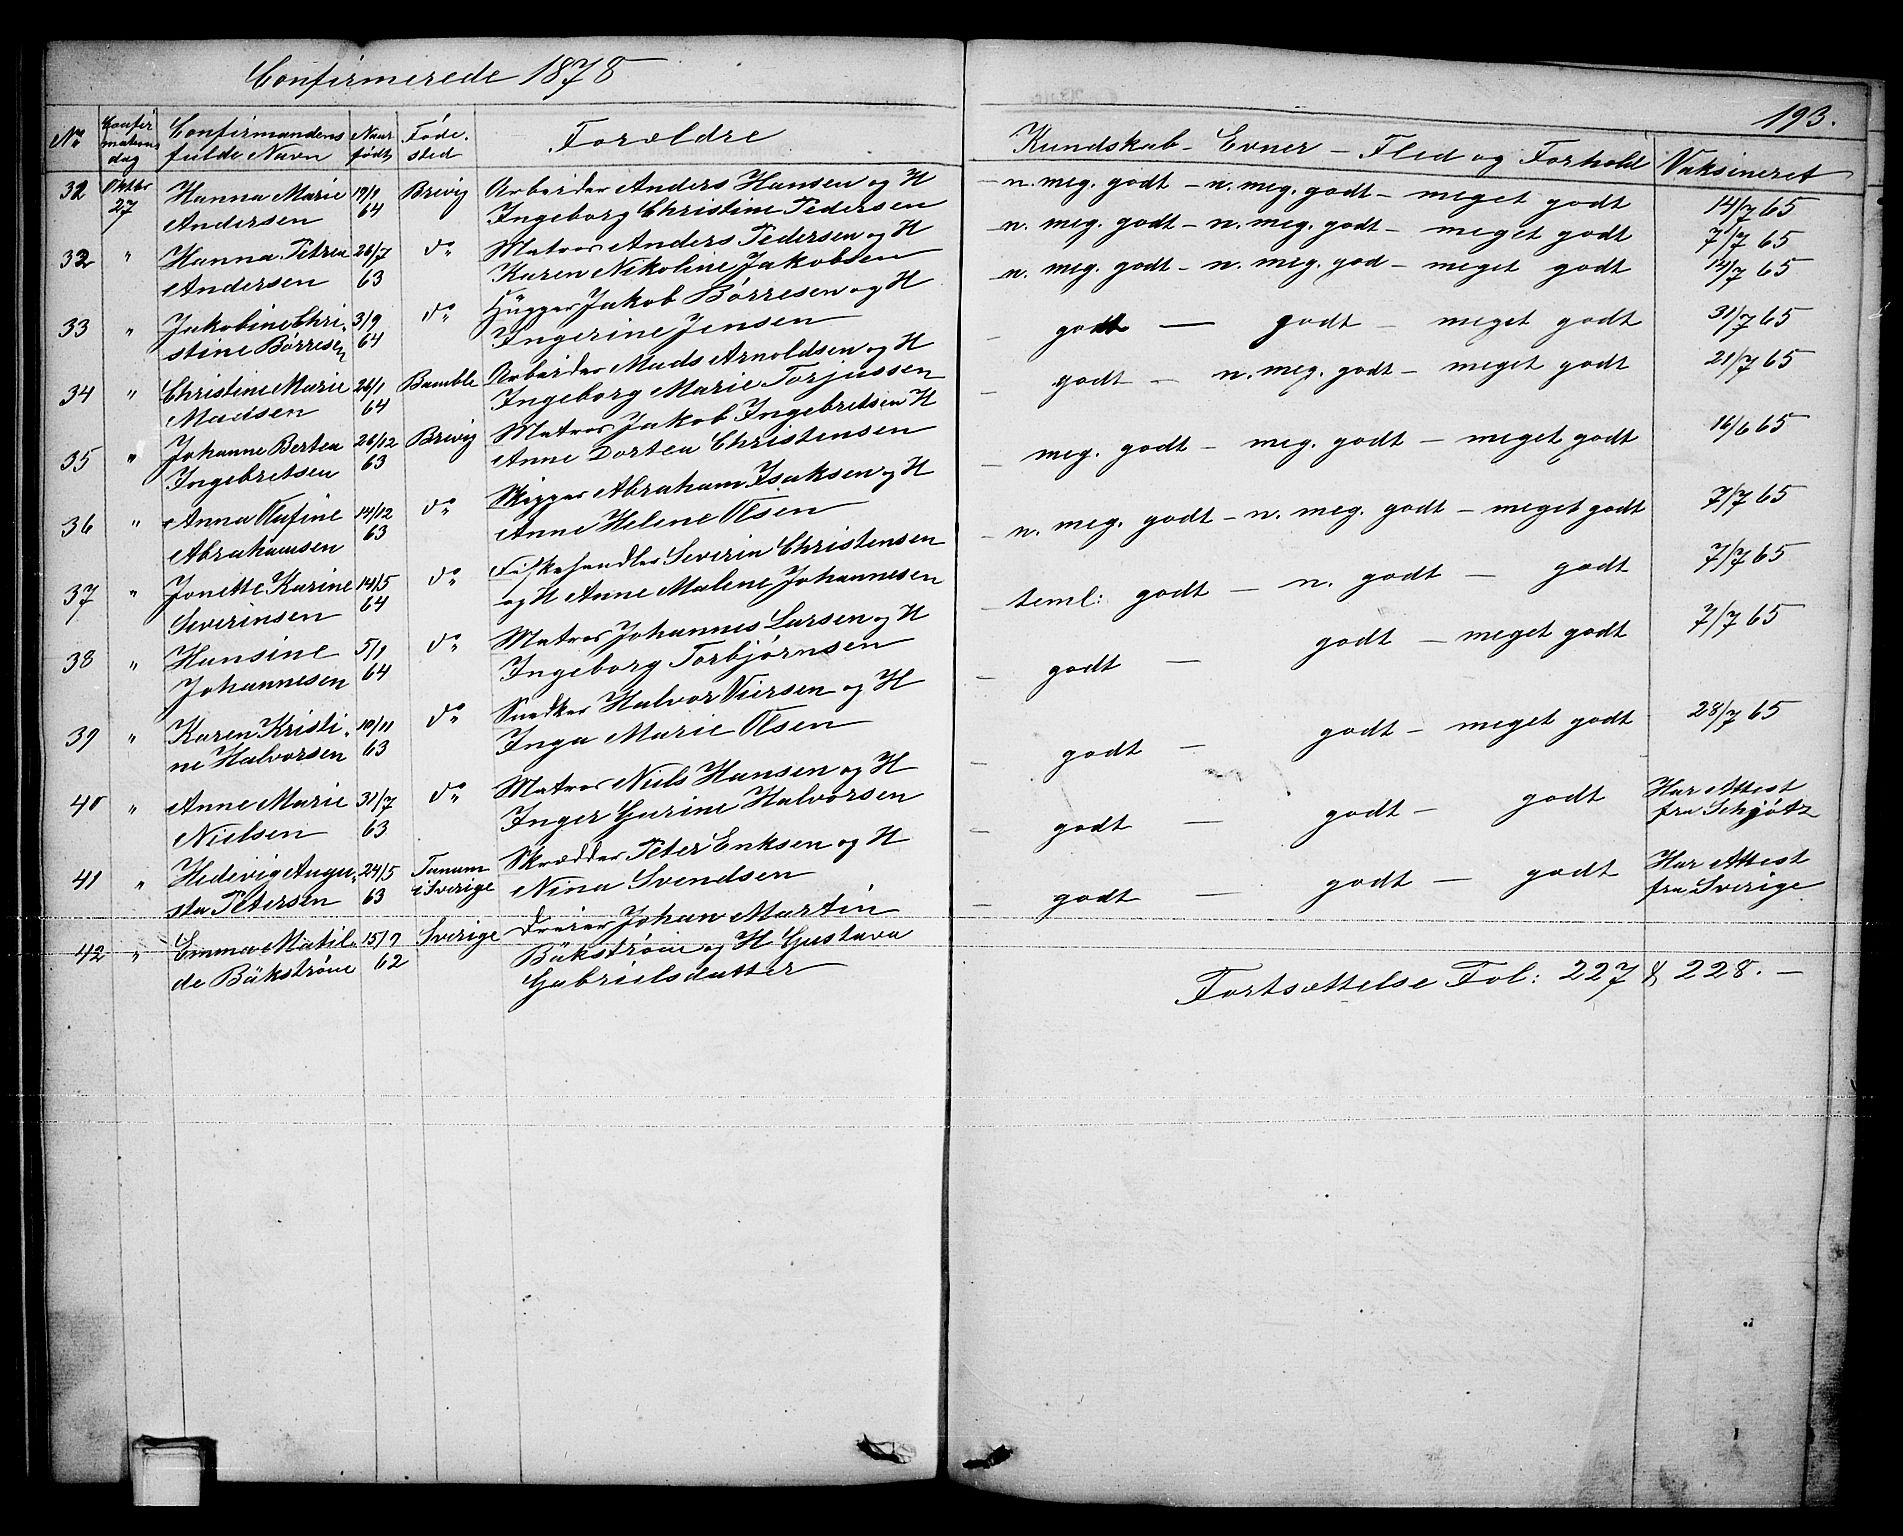 Confirmerede 1878
193.
No Confirmations dag Confirmandens fulde Navn Naar født Føde-sted Forældre Kundskab - Evner - Flid og Forhold Vaksineret
32 Oktbr 27 Hanna Marie 19/9 Brevig Arbeider Anders Hansen og H - n. meg. godt - n. meg. godt - meget godt 14/7 65
Andersen 64 Ingeborg Christine Pedersen
32 " Hanna Petrea 26/7 do Matros Anders Pedersen og H - n. meg. godt - n. meg. godt - meget godt 7/7 65
Andersen 63 Karen Nikoline Jakobsen
33 " Jakobine Chri- 3/9 do Hügger Jakob Børresen og H - n. meg. godt - n. meg. god - meget godt 14/7 65
stine Børresen 64 Ingerine Jensen
34 " Christine Marie 26/1 Bamble Arbeider Mads Arnoldsen og H - godt - godt - meget godt 31/7 65
Madsen 64 Ingeborg Marie Torjussen
35 " Johanne Bertea 26/12 Brevig Matros Jakob Ingebretsen H - godt - n. meg. godt - meget godt 21/7 65
Ingebretsen 63 Anne Dortea Christensen
36 " Anna Olufine 14/12 do Skipper Abraham Isaksen og H - meg. godt - meg. godt - meget godt 16/6 65
Abrahamsen 63 Anne Helene Olsen
37 " Jonette Karine 14/5 do Fiskehandler Severin Christensen - n. meg. godt - n. meg. godt - meget godt 7/7 65
Severinsen 64 og H Anne Malene Johannesen
38 " Hansine 5/9 do Matros Johannes Larsen og H - teml: godt - n. godt - godt 7/7 65
Johannesen 64 Ingeborg Torbjørnsen
39 " Karen Kristi- 10/11 do Snedker Halvor Viersen og H - godt - godt - meget godt 7/7 65
ne Halvorsen 63 Inga Marie Olsen
40 " Anne Marie 31/7 do Matros Niels Hansen og H - godt - godt - meget godt 28/7 65
Nielsen 63 Inger Gurine Halvorsen
41 " Hedevig Augu- 24/5 Tanum Skrædder Peter Eriksen og H - godt - godt - godt Har Attest
sta Petersen 63 i Sverige Nina Svendsen fra Schjøtz
42 " Emma Matil- 15/7 Sverige Dreier Johan Martin - godt - godt - godt Har Attest
de Bäkstrøm 62 Bäkstrøm og H Gustava fra Sverige
Gabrielsdatter
Fortsættelse Fol: 227 & 228. -